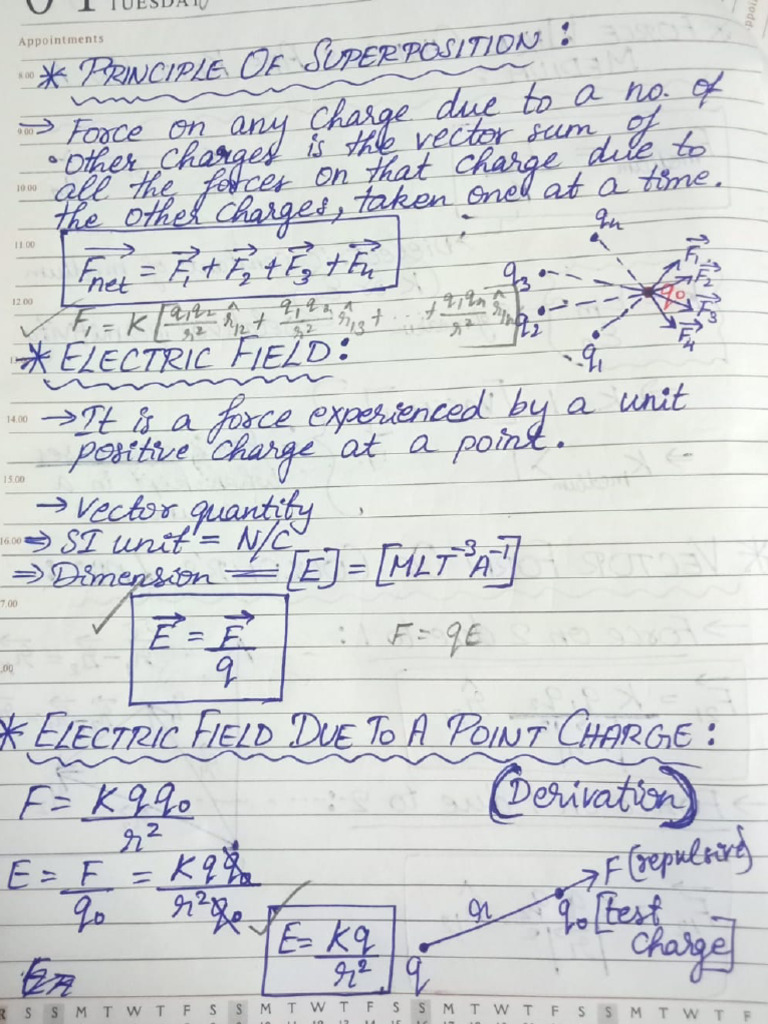 TUESDAY
Appointments
8.00
* PRINCIPLE OF SUPERPOSITION :
9.00
→ Force on any charge due to a no. of
other charges is the vector sum of
10.00
all the forces on that charge due to
the other charges, taken one at a time.
11.00
F⃗net = F⃗1 + F⃗2 + F⃗3 + F⃗n
qn
q3
q2
q1
q0
F⃗1
F⃗2
F⃗3
F⃗4
12.00
F1 = K [q1q2/r² r̂12 + q1q3/r² r̂13 + ... + q1qn/r² r̂1n]
* ELECTRIC FIELD :
14.00
→ It is a force experienced by a unit
positive charge at a point.
15.00
→ Vector quantity
16.00
→ SI unit = N/C
⇒ Dimension = [E] = [MLT⁻³A⁻¹]
7.00
E⃗ = F⃗/q
F = qE
.00
* ELECTRIC FIELD DUE TO A POINT CHARGE :
(Derivation)
F = Kqq0/r²
E = F/q0 = Kqq0/r²q0
E = Kq/r²
q
r
F (repulsive)
q0 [test
charge]
R S S M T W T F S S M T W T F S S M T W T F S S M T W T F